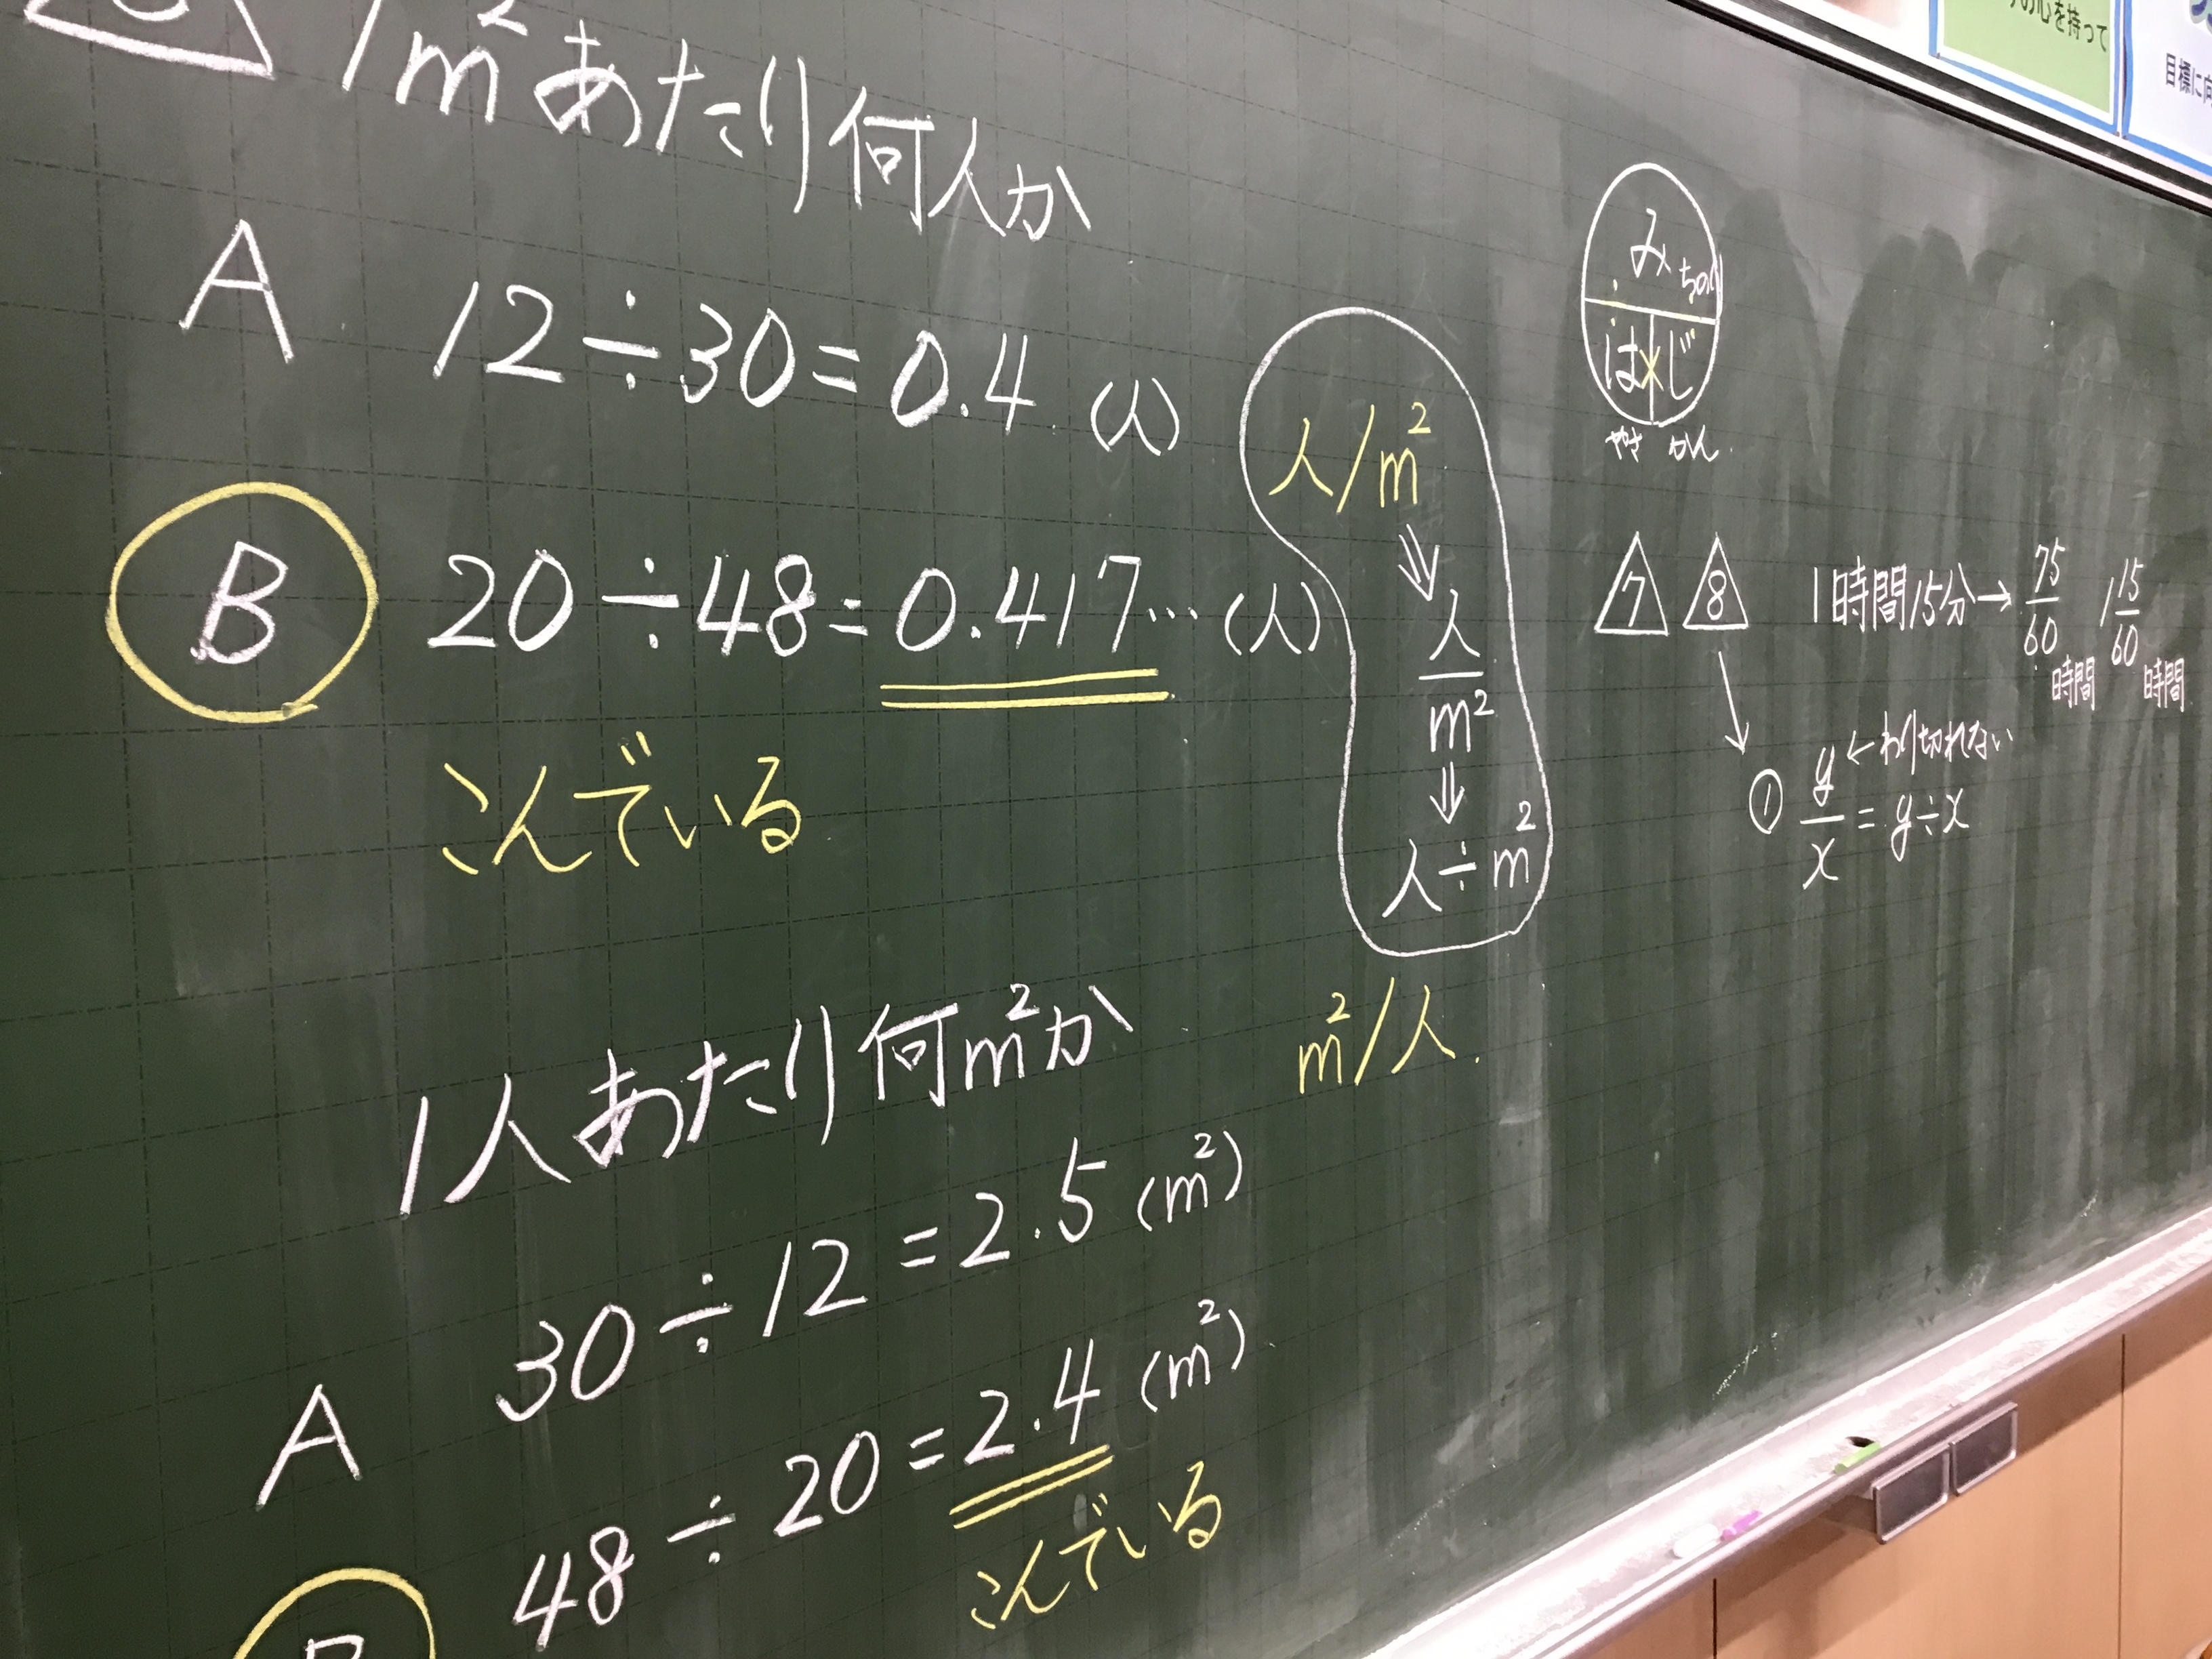 1m²あたり何人か
A 12÷30=0.4 (人)
B 20÷48=0.417… (人)
こんでいる
人/m²
⇓
人
m²
⇓
人÷m²
1人あたり何m²か
m²/人
A 30÷12=2.5 (m²)
48÷20=2.4 (m²)
こんでいる
みちのり
は じ
やさ かん
7 8 1時間15分→ 75/60 時間 1 15/60 時間
① y/x = y÷x ←わり切れない
の心を持って
目標に向